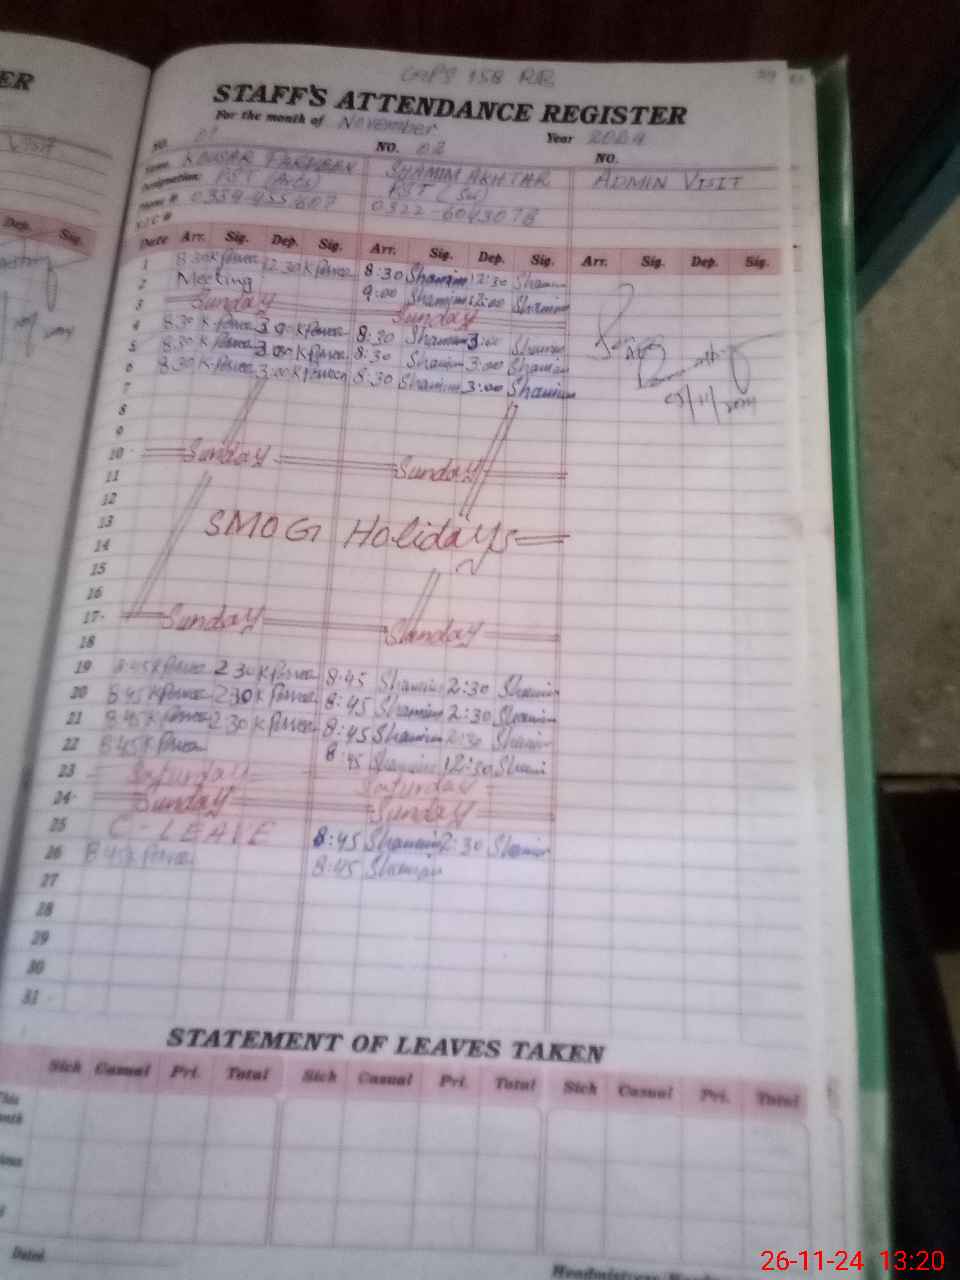 ER
GGPS 158 RB
STAFF'S ATTENDANCE REGISTER
For the month of November Year 2024
NO. 01 NO. 02 NO.
Name. KAUSAR PARVEEN SHAMIM AKHTAR ADMIN VISIT
Designation: PST (Arts) PST (Sci)
Phone #
N.I.C #
Dep. Sig.
Date Arr. Sig. Dep. Sig. Arr. Sig. Dep. Sig. Arr. Sig. Dep. Sig.
1 8:30 K Parveen 12:30 K Parveen 8:30 Shamim 12:30 Shamim
2 Meeting 9:00 Shamim 12:00 Shamim
3 Sunday Sunday
4 8:30 K Parveen 3:00 K Parveen 8:30 Shamim 3:00 Shamim
5 8:30 K Parveen 3:00 K Parveen 8:30 Shamim 3:00 Shamim
6 8:30 K Parveen 3:00 K Parveen 8:30 Shamim 3:00 Shamim
7
8
9
10 Sunday Sunday
11
12
13 SMOG Holidays
14
15
16
17 Sunday Sunday
18
19 8:45 K Parveen 2:30 K Parveen 8:45 Shamim 2:30 Shamim
20 8:45 K Parveen 2:30 K Parveen 8:45 Shamim 2:30 Shamim
21 8:45 K Parveen 2:30 K Parveen 8:45 Shamim 2:30 Shamim
22 8:45 K Parveen 8:45 Shamim 12:30 Shamim
23 Saturday Saturday
24 Sunday Sunday
25 C-LEAVE 8:45 Shamim 2:30 Shamim
26 8:45 K Parveen 8:45 Shamim
27
28
29
30
31
STATEMENT OF LEAVES TAKEN
Sick Casual Pri. Total Sick Casual Pri. Total Sick Casual Pri. Total
This
Dated.
26-11-24 13:20